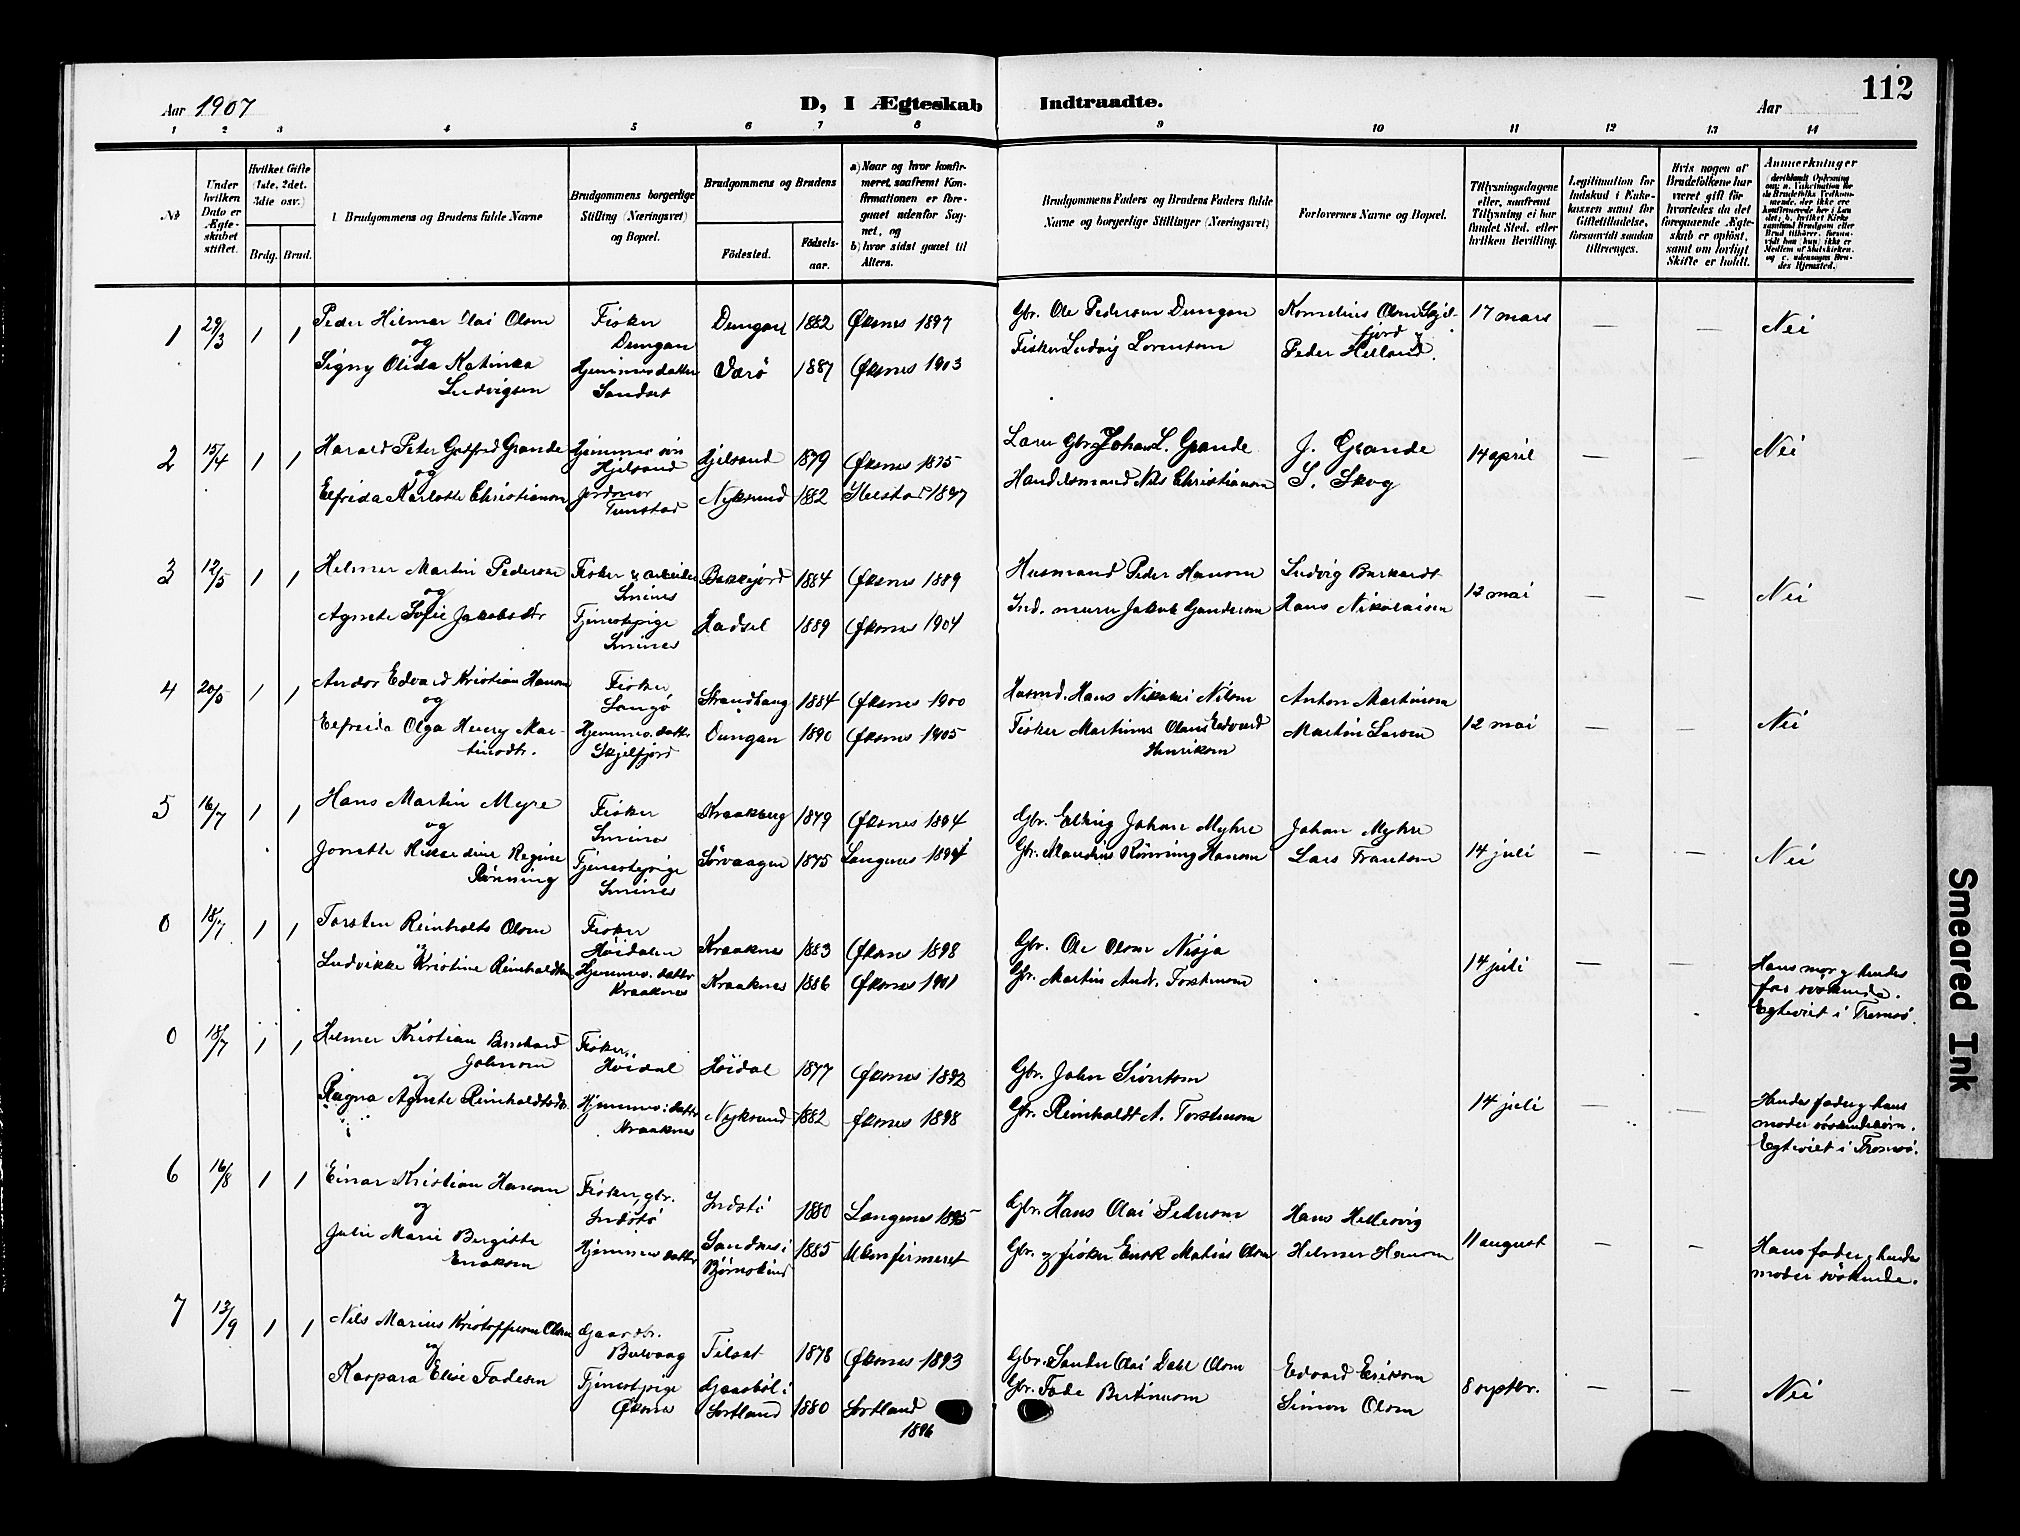 112
Aar 1907 D, I Ægteskab Indtraadte. Aar
1 2 3 4 5 6 7 8 9 10 11 12 13 14
№
Under hvilken Dato er Ægteskabet stiftet.
Hvilket Gifte (1ste, 2det, 3die osv.)
Brdg. Brud.
Brudgommens og Brudens fulde Navne
Brudgommens borgerlige Stilling (Næringsvei) og Bopæl.
Brudgommens og Brudens
Fødested.
Fødselsaar.
a) Naar og hvor konfirmeret, saafremt Konfirmationen er foregaaet udenfor Sognet, og
b) hvor sidst gaaet til Alters.
Brudgommens Faders og Brudens Faders fulde Navne og borgerlige Stillinger (Næringsvei)
Forlovernes Navne og Bopæl.
Tillysningsdagene eller, saafremt Tillysning ei har fundet Sted, efter hvilken Bevilling.
Legitimation for Indskud i Enkekassen samt for Giftetilladelse, forsaavidt saadan tiltrænges.
Hvis nogen af Brudefolkene har været gift før hvorledes da det foregaaende Ægteskab er opløst, samt om lovligt Skifte er holdt.
Anmerkninger
1 29/3 1 1 Peder Hilmar Olai Olsen Fisker Dungan Dungan 1882 Øksnes 1897 Gbr. Ole Pedersen Dungan Kornelius Olsen Skjelfjord 17 mars — — Nei
og
Signy Olida Katinka Ludvigsen Hjemmesdatter Sandset Værø 1887 Øksnes 1903 Fisker Ludvig Lorentsen Peder Helland.
2 15/4 1 1 Harald Peter Gotfred Grande Hjemmes søn Hjelsand Hjelsand 1879 Øksnes 1895 Lærer Gbr. Johan L. Grande J. Grande 14 april — — Nei
og
Elfrida Karlotte Christiansen Jordmor Tunstad Nyksund 1882 1897 Handelsmand Nils Christiansen S. Skog
3 12/5 1 1 Helmer Martin Pedersen Fisker & arbeider Smines Bakkejord 1884 Øksnes 1889 Husmand Peder Hansen Ludvig Burkardt 12 mai — — Nei
og
Agnete Sofie Jakobsdtr Tjenestepige Smines Hadsel 1889 Øksnes 1904 Ind. murer Jakob Gundersen Hans Nikolaisen
4 20/5 1 1 Andor Edvard Kristian Hansen Fisker Langø Strandhaug 1884 Øksnes 1900 Husmd. Hans Nikolai Nilsen Anton Martinsen 12 mai — — Nei
og
Elfrida Olga Henry Martinsdtr. Hjemmes. datter Skjelfjord Dungan 1890 Øksnes 1905 Fisker Martinus Olaus Edvard Henriksen Martin Larsen
5 16/7 1 1 Hans Martin Myre Fisker Smines Kraakberg 1879 Øksnes 1894 Gbr. Elling Johan Myhre Johan Myhre 14 juli — — Nei
og
Jonette Rikardine Regine Rønning Tjenestepige Smines Sørvaagen 1875 Langenes 1894 Gbr. Mandrus Rønning Hansen Lars Frantsen
0 18/7 1 1 Torsten Reinholts Olsen Fisker Høidalen Kraaknes 1883 Øksnes 1898 Gbr. Ole Olsen Nisja 14 juli — — Hans mor og hendes far søskende. Egteviet i Tromsø.
og
Ludvikke Kristine Reinholdtsen Hjemmes. datter Kraaknes Kraaknes 1886 Øksnes 1901 Gbr. Martin And. Torstensen
0 18/7 1 1 Helmer Kristian Bernhard Johnsen Fisker, Høidal Høidal 1877 Øksnes 1892 Gbr. John Sivertsen 14 juli — — Hendes fader og hans moder søskendebørn. Egteviet i Tromsø.
og
Ragna Agnete Reinholdtsdtr. Hjemmes: datter Kraaknes Nyksund 1882 Øksnes 1898 Gbr. Reinholdt A. Torstensen
6 16/8 1 1 Einar Kristian Hansen Fisker, gbr. Indstø Indstø 1880 Langenes 1895 Gbr. Hans Olai Pedersen Hans Hellesvig 11 august — — Hans fader og hendes moder søskende.
og
Julie Marie Bergitte Enoksen Hjemmes datter Sandnes i Bjørnskind 1885 Ukonfirmeret Gbr. og fisker Enok Matias Olsen Helmer Hansen
7 13/9 1 1 Nils Marius Kristoffersen Olsen Gaardbr. Bulvaag Tilset 1878 Øksnes 1893 Gbr. Sander Olai Dahl Olsen Edvard Eriksen 8 septbr. — — Nei
og
Kaspara Elise Todesen Tjenestepige Øksnes i Sortland 1880 Sortland 1896 Gbr. Tode Bertinussen Simon Olsen
Smeared Ink